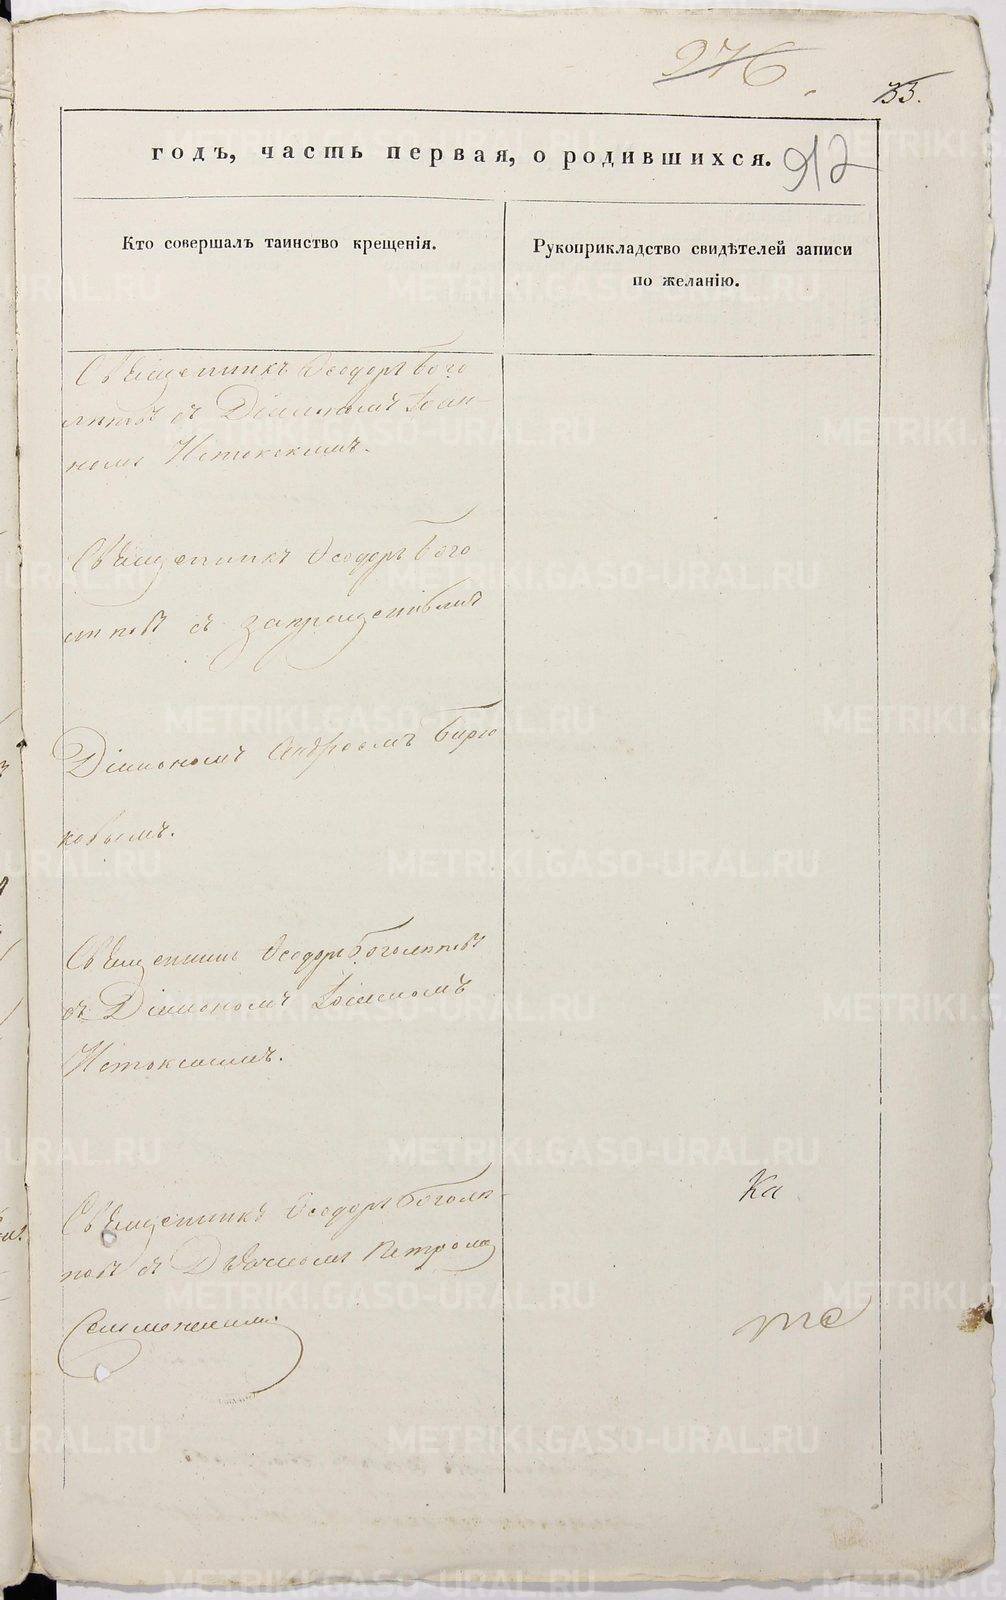 276
33.
годъ, часть первая, о родившихся. 912
Кто совершалъ таинство крещенія.
Рукоприкладство свидѣтелей записи
по желанію.
Священникъ Ѳеодоръ Бого
лѣповъ съ Діакономъ Іоан-
номъ Истокскимъ.
Священникъ Ѳеодоръ Бого
лѣповъ съ запрещеннымъ
Діакономъ Андреемъ Бирю
ковымъ.
Священникъ Ѳеодоръ Боголѣповъ
съ Діакономъ Іоанномъ
Истокскимъ.
Священникъ Ѳеодоръ Боголѣ-
повъ съ Дьячкомъ Петромъ
Ка
те
METRIKI.GASO-URAL.RU